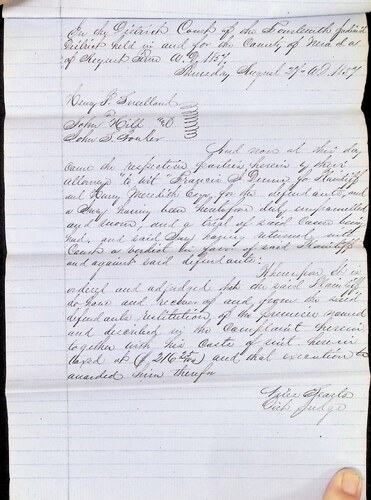 In the District Court of the Fourteenth Judicial
District held in and for the County of Nevada
of August Term A.D. 1857
Thursday August 27 A.D. 1857
Henry F.
John Hill
John S.
And now at this day
came the respective parties herein by their
Attorneys "to wit" Francis J. Dunn for Plaintiff
and Henry Meredith Esq for the defendants, and
a Jury having been heretofore duly empannelled
and sworn, and a trial of said Cause being
had, and said Jury having returned into
Court a verdict in favor of said Plaintiff
and against said defendants:
Whereupon It is
ordered and adjudged that the said Plaintiff
do have and recover of and from the said
defendants restitution of the premises named
and described in the Complaint herein
together with his Costs of suit herein
taxed at ($216 and that execution be
awarded him therefor
Niles Searls
Dist Judge